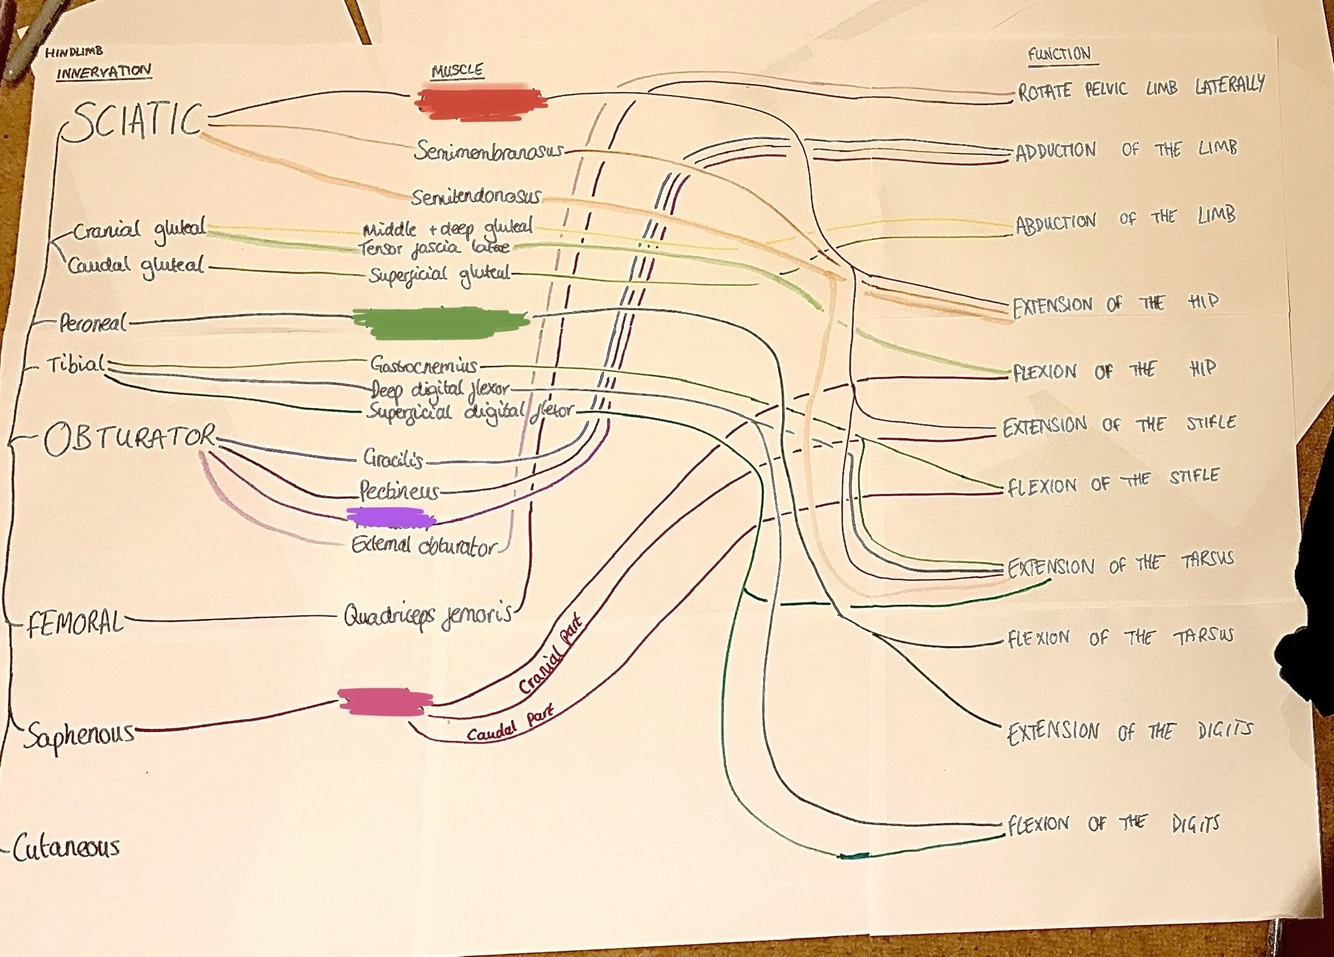 HINDLIMB
INNERVATION
MUSCLE
FUNCTION
SCIATIC
Semimembranosus
Semitendonosus
Cranial gluteal
Middle + deep gluteal
Tensor fascia latae
Caudal gluteal
Superficial gluteal
Peroneal
Tibial
Gastrocnemius
Deep digital flexor
Superficial digital flexor
OBTURATOR
Gracilis
Pectineus
External obturator
FEMORAL
Quadriceps femoris
Saphenous
Cranial part
Caudal part
Cutaneous
ROTATE PELVIC LIMB LATERALLY
ADDUCTION OF THE LIMB
ABDUCTION OF THE LIMB
EXTENSION OF THE HIP
FLEXION OF THE HIP
EXTENSION OF THE STIFLE
FLEXION OF THE STIFLE
EXTENSION OF THE TARSUS
FLEXION OF THE TARSUS
EXTENSION OF THE DIGITS
FLEXION OF THE DIGITS